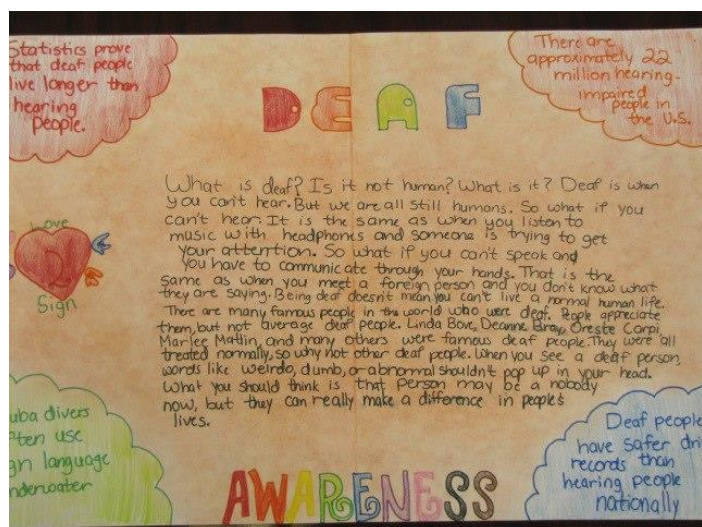 Statistics prove
that deaf people
live longer than
hearing
people.
DEAF
There are
approximately 22
million hearing-
impaired
people in
the U.S.
What is deaf? Is it not human? What is it? Deaf is when
you can't hear. But we are all still humans. So what if you
can't hear. It is the same as when you listen to
music with headphones and someone is trying to get
your attention. So what if you can't speak and
you have to communicate through your hands. That is the
same as when you meet a foreign person and you don't know what
they are saying. Being deaf doesn't mean you can't live a normal human life.
There are many famous people in the world who were deaf. People appreciate
them, but not average deaf people. Linda Bove, Deanne Bray, Oreste Carpi,
Marlee Matlin, and many others were famous deaf people. They were all
treated normally, so why not other deaf people. When you see a deaf person,
words like weirdo, dumb, or abnormal shouldn't pop up in your head.
What you should think is that person may be a nobody
now, but they can really make a difference in people's
lives.
Love
Sign
uba divers
ften use
gn language
nderwater
Deaf people
have safer dri
records than
hearing people
nationally
AWARENESS